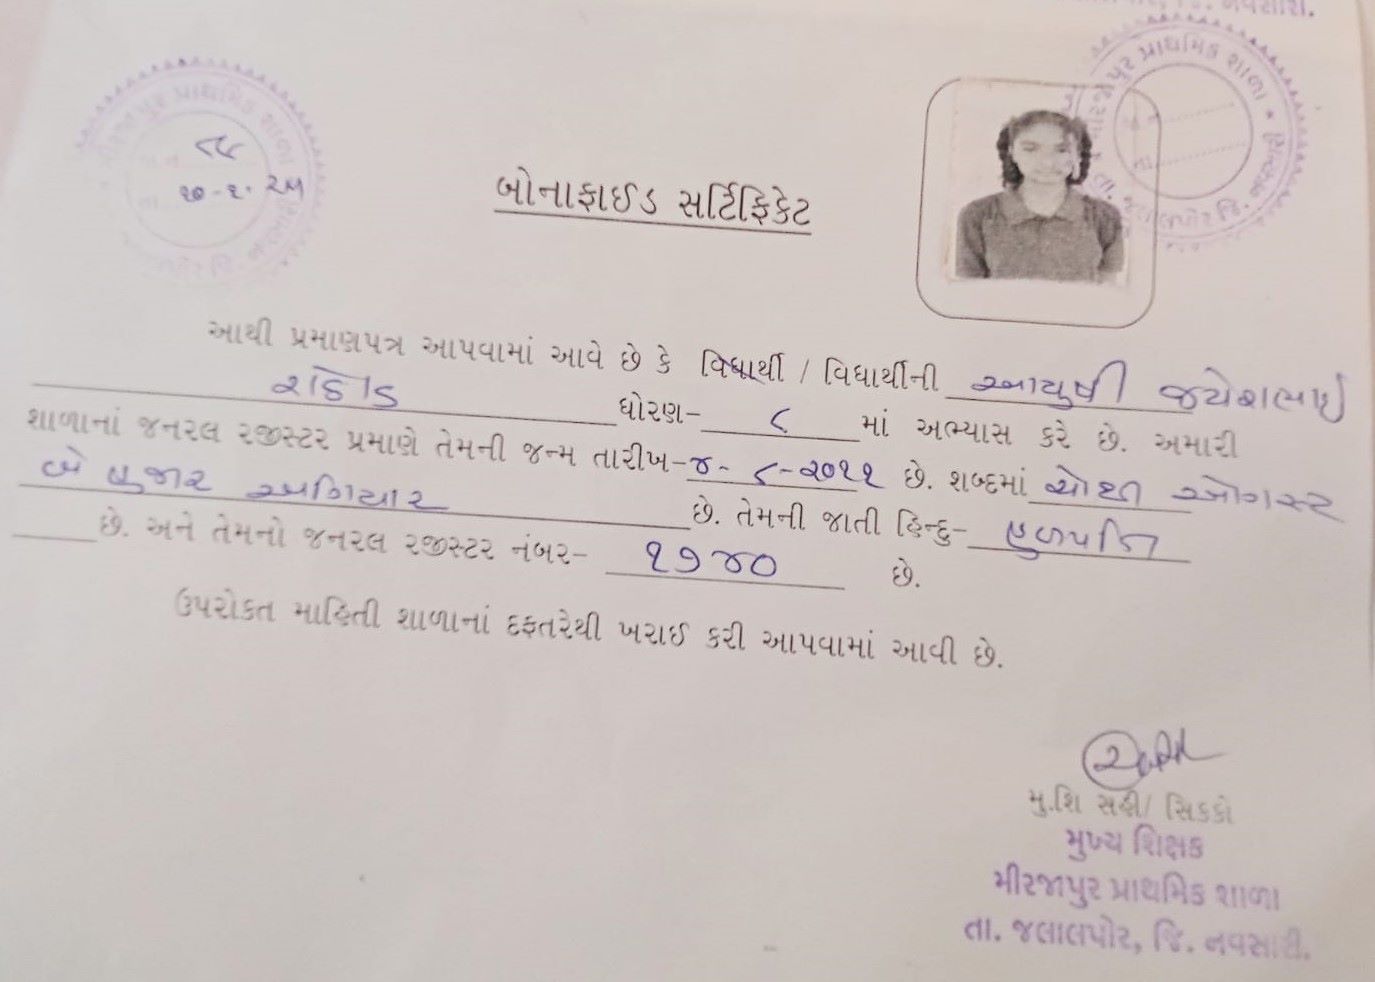 જિ. નવસારી.
પ્રાથમિક શાળા
૮૮
૧૦-૬-૨૫
બોનાફાઈડ સર્ટિફિકેટ
આથી પ્રમાણપત્ર આપવામાં આવે છે કે વિદ્યાર્થી / વિદ્યાર્થીની આયુષી જયેશભાઈ
રાઠોડ ધોરણ- ૮ માં અભ્યાસ કરે છે. અમારી
શાળાનાં જનરલ રજીસ્ટર પ્રમાણે તેમની જન્મ તારીખ-૪-૮-૨૦૧૧ છે. શબ્દમાં ચોથી ઓગસ્ટ
બે હજાર અગિયાર છે. તેમની જાતી હિન્દુ- હળપતિ
છે. અને તેમનો જનરલ રજીસ્ટર નંબર- ૧૭૪૦ છે.
ઉપરોકત માહિતી શાળાનાં દફતરેથી ખરાઈ કરી આપવામાં આવી છે.
મુ.શિ સહી/ સિકકો
મુખ્ય શિક્ષક
મીરજાપુર પ્રાથમિક શાળા
તા. જલાલપોર, જિ. નવસારી.